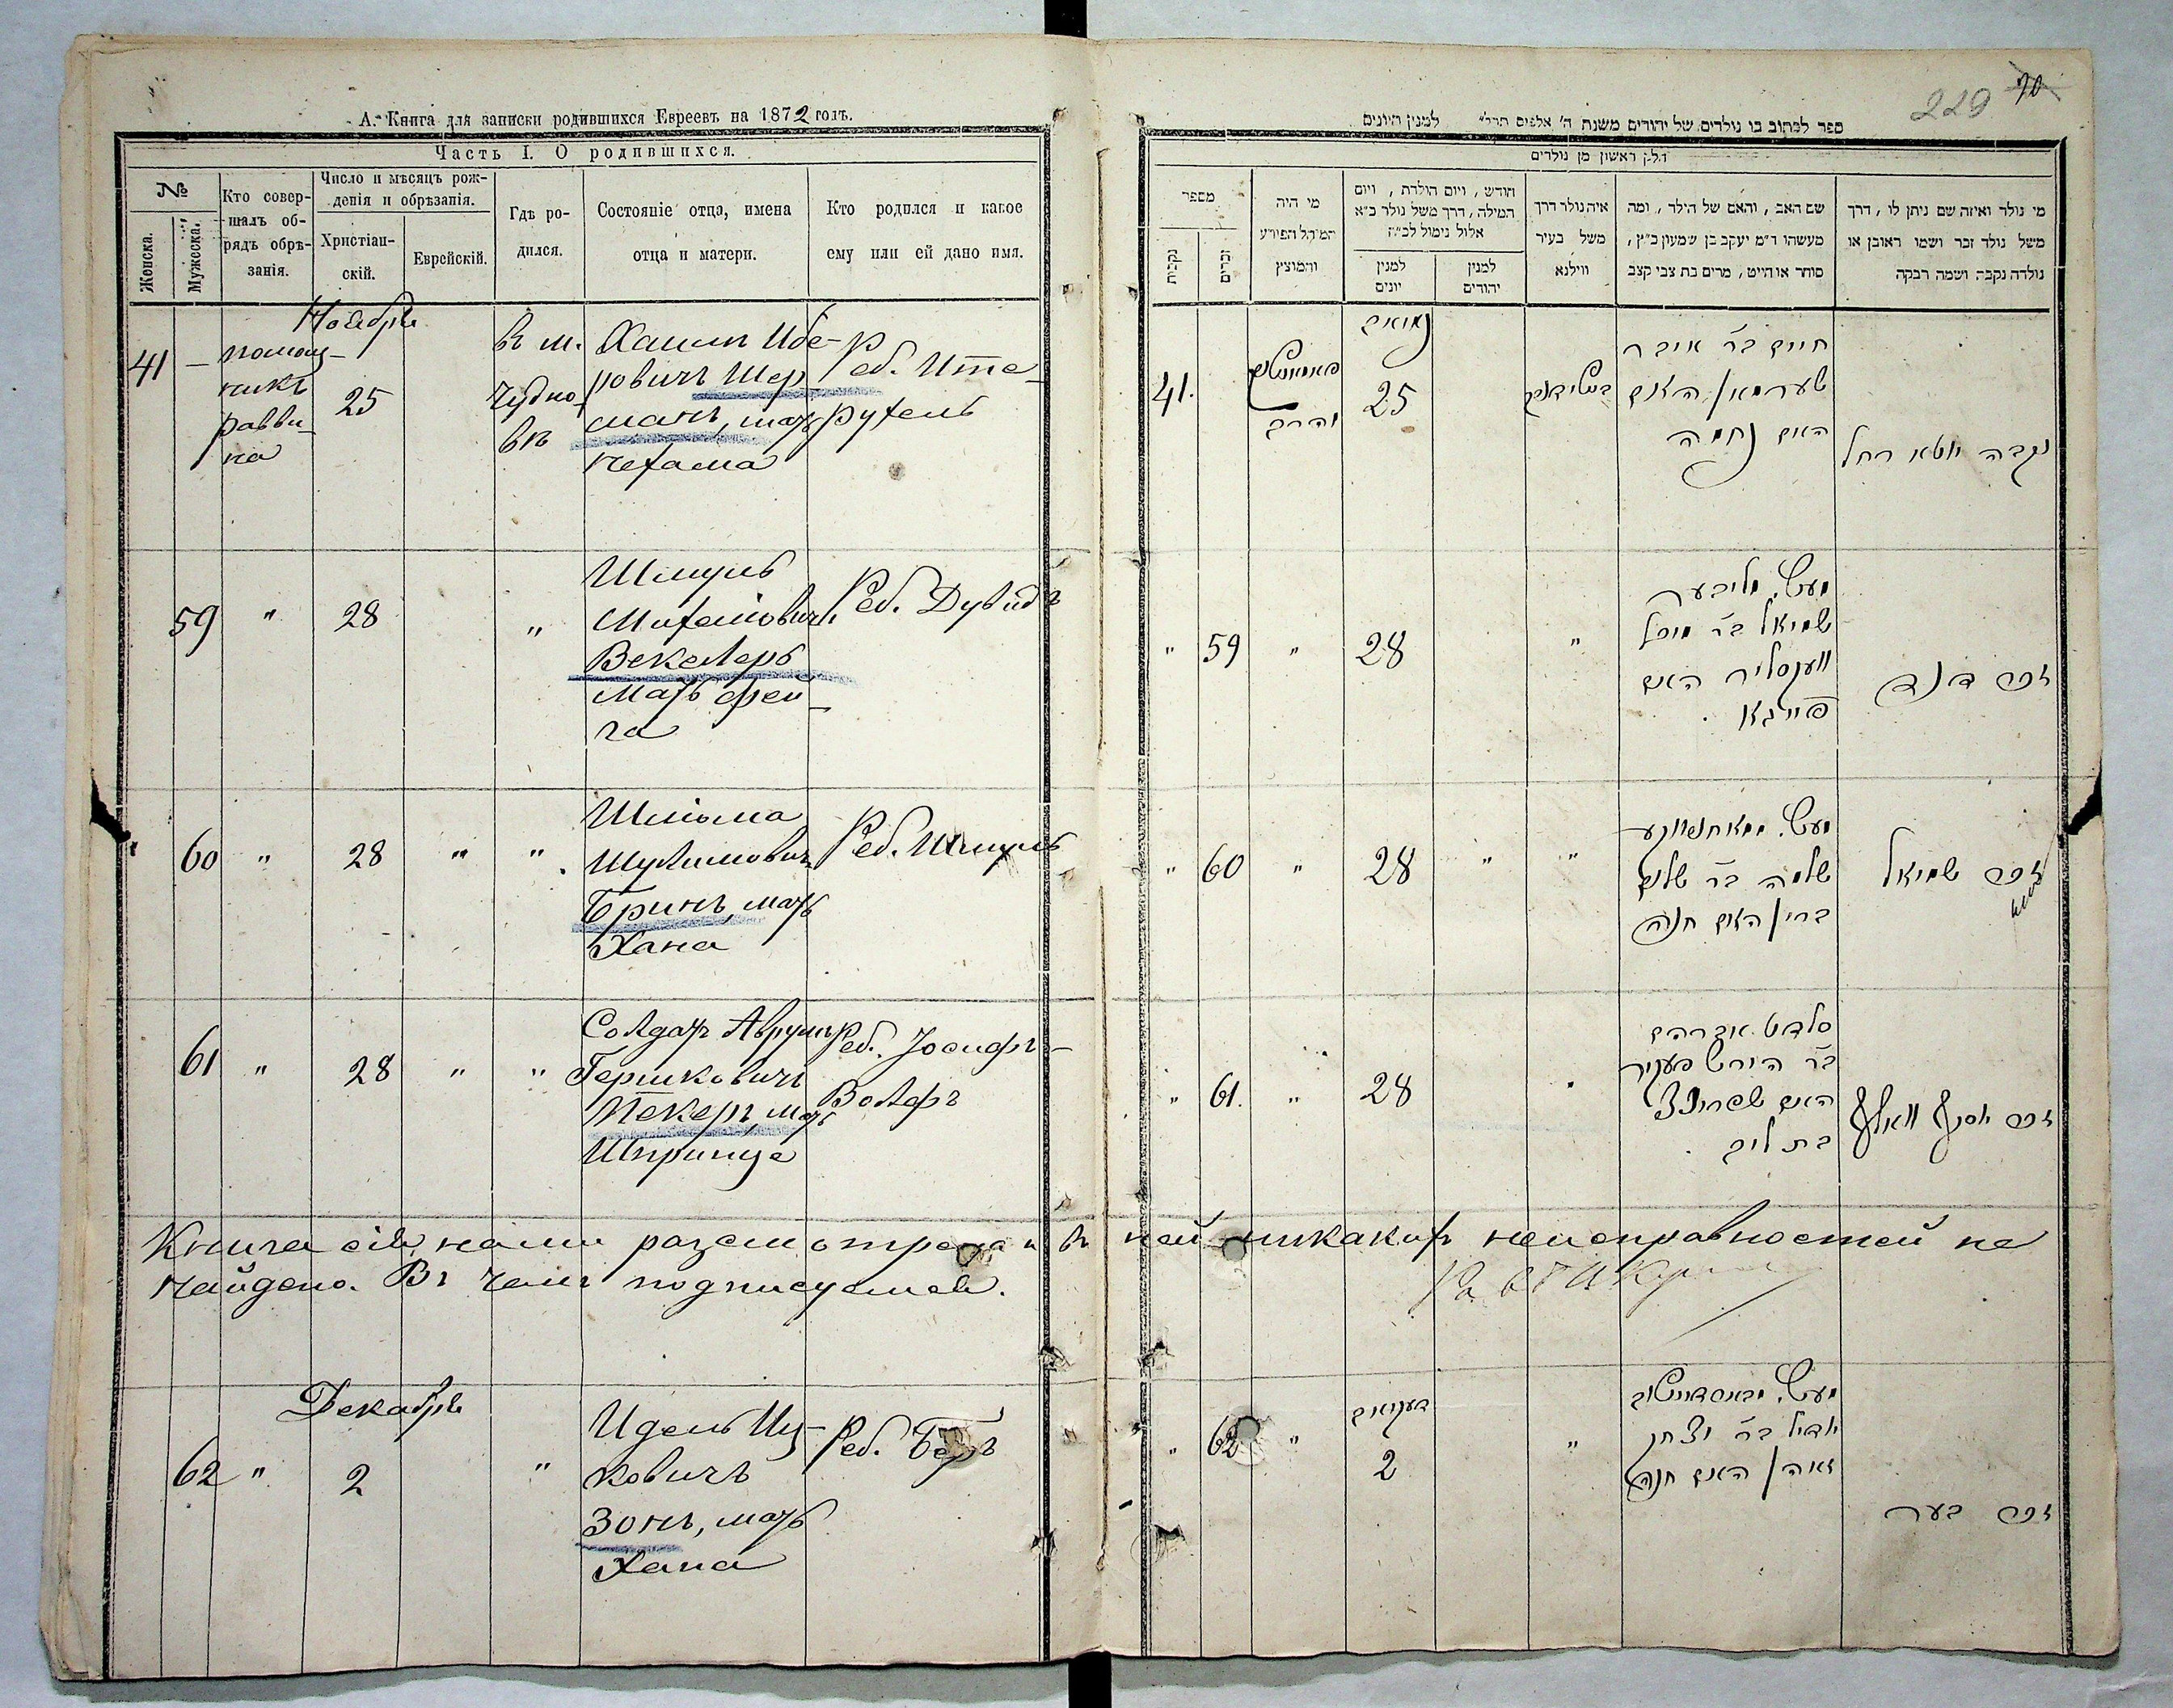 А. Книга для записки родившихся Евреевъ на 1872 годъ.
Часть I. О родившихся.
№
Женска.
Мужеска.
Кто совер-
шалъ об-
рядъ обрѣ-
занія.
Число и мѣсяцъ рож-
денія и обрѣзанія.
Христіан-
скій.
Еврейскій.
Гдѣ ро-
дился.
Состояніе отца, имена
отца и матери.
Кто родился и какое
ему или ей дано имя.
Ноября
41 —
помощ-
никъ
равви-
на
25
въ м.
Чудно-
въ
Хаимъ Ибе-
ровичъ Шер
манъ, мать
Нехама
Реб. Ите-
Рухель
59 " 28 "
Шмуль
Михелiовичъ
Векслеръ
мать Фей-
га
Реб. Дувидъ
60 " 28 " "
Шліома
Шулимовичъ
Бринъ, мать
Хана
Реб. Шмуль
61 " 28 " "
Солдатъ Аврумъ
Гершковичъ
Пекеръ, мать
Шпринца
Реб. Іосифъ-
Волфъ
Книга сія нами разсмотрена и въ ней никакихъ неисправностей не
найдено. Въ чемъ подписуемся.
Декабря
62 " 2 "
Идель Иц-
ковичъ
Зонъ, мать
Хана
Реб. Беръ
229 70
ספר לכתוב בו נולדים של יהודים משנת ה' אלפים תרל" למנין היונים
חלק ראשון מן נולדים
מספר
נקבות
זכרים
מי היה
המוהל הפורע
והמוצץ
חודש, ויום הולדת, ויום
המילה, דרך משל נולד כ"א
אלול נימול לכ"ח
למנין
יונים
למנין
יהודים
איה נולד דרך
משל בעיר
ווילנא
שם האב, והאם של הילד, ומה
מעשהו ד"מ יעקב בן שמעון כ"ץ,
סוחר או חייט, מרים בת צבי קצב
מי נולד ואיזה שם ניתן לו, דרך
משל נולד זכר ושמו ראובן או
נולדה נקבה ושמה רבקה
41.
25
חיים ב"ר איבר
שערמאן האם
האם נחמה
נקבה יוטא רחל
" 59 " 28 "
שמואל ב"ר מיכל
וועקסליר האם
פייגא
זכר דוד
" 60 " 28 " "
שלמה ב"ר שלום
ברין האם חנה
זכר שמואל
" 61. " 28
סלדט אברהם
ב"ר הירש פעקיר
האם שפרינצי
בת ליב
זכר יוסף וואלף
" 62 " 2 "
יודיל ב"ר יצחק
זאהן האם חנה
זכר בער